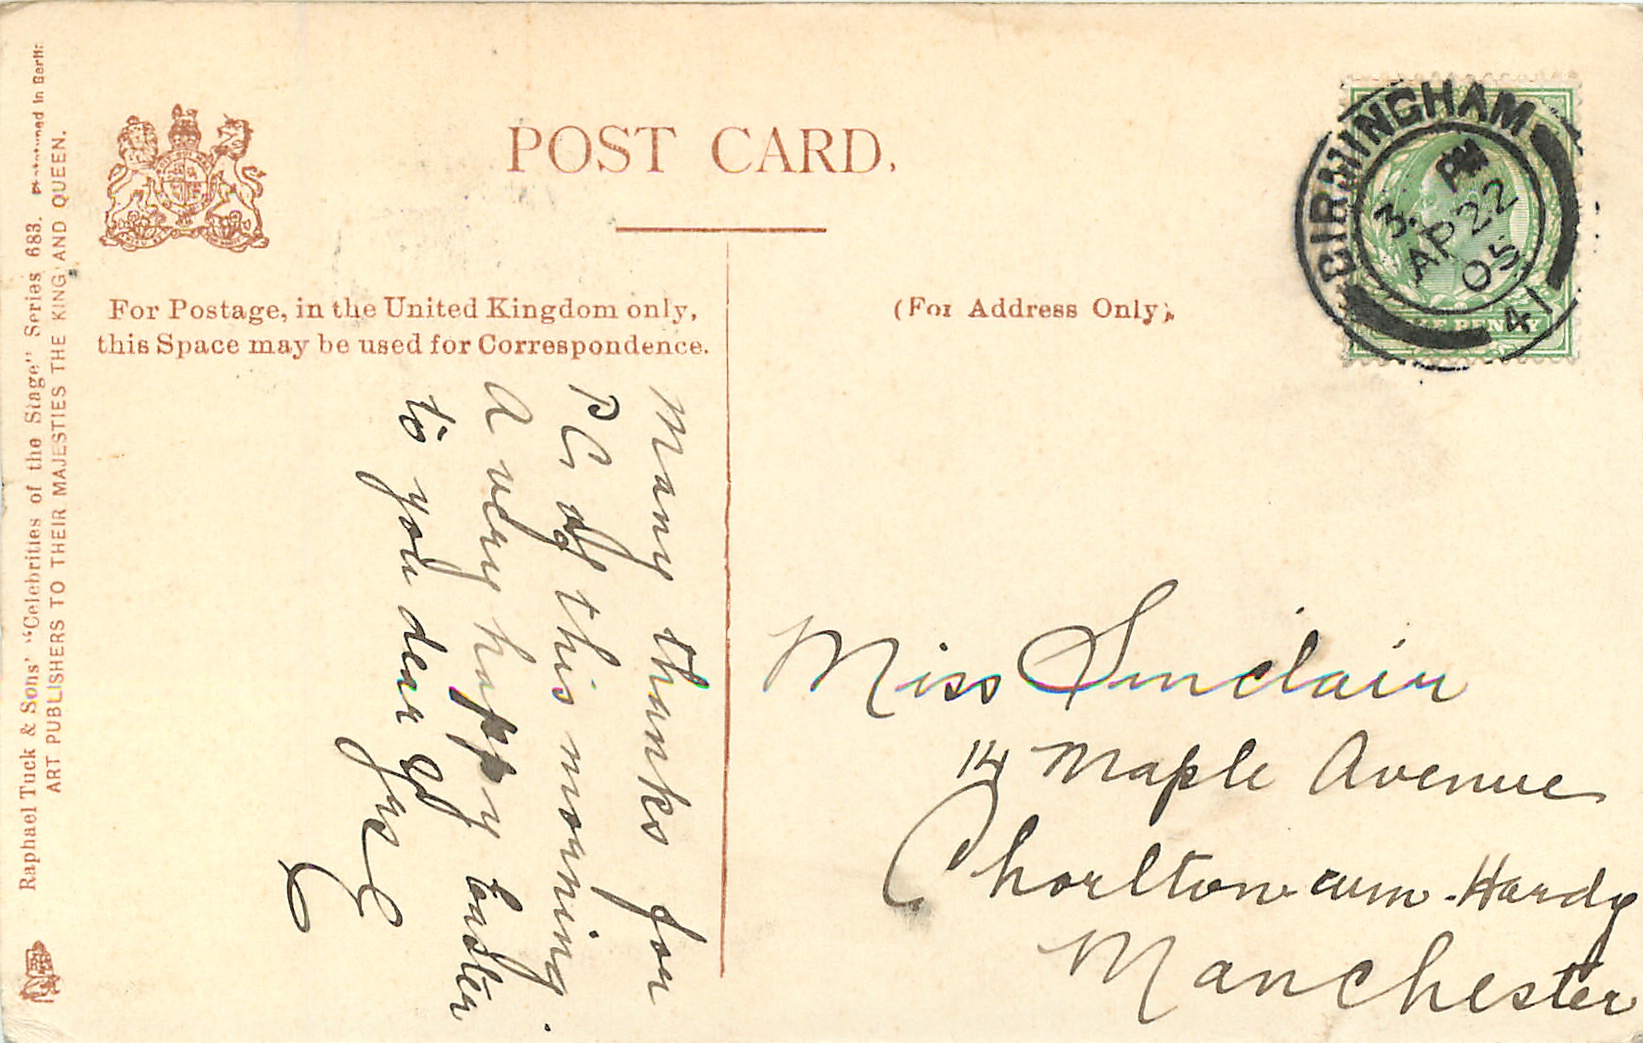 POST CARD.
For Postage, in the United Kingdom only,
this Space may be used for Correspondence.
(For Address Only).
BIRMINGHAM
3. PM
AP 22
05
41
HALF PENNY
Many thanks for
PC of this morning.
A very happy Easter
to you dear
Miss Sinclair
14 Maple Avenue
Chorlton-cum-Hardy
Manchester
Raphael Tuck & Sons' "Celebrities of the Stage" Series 683. in Berlin
ART PUBLISHERS TO THEIR MAJESTIES THE KING AND QUEEN.